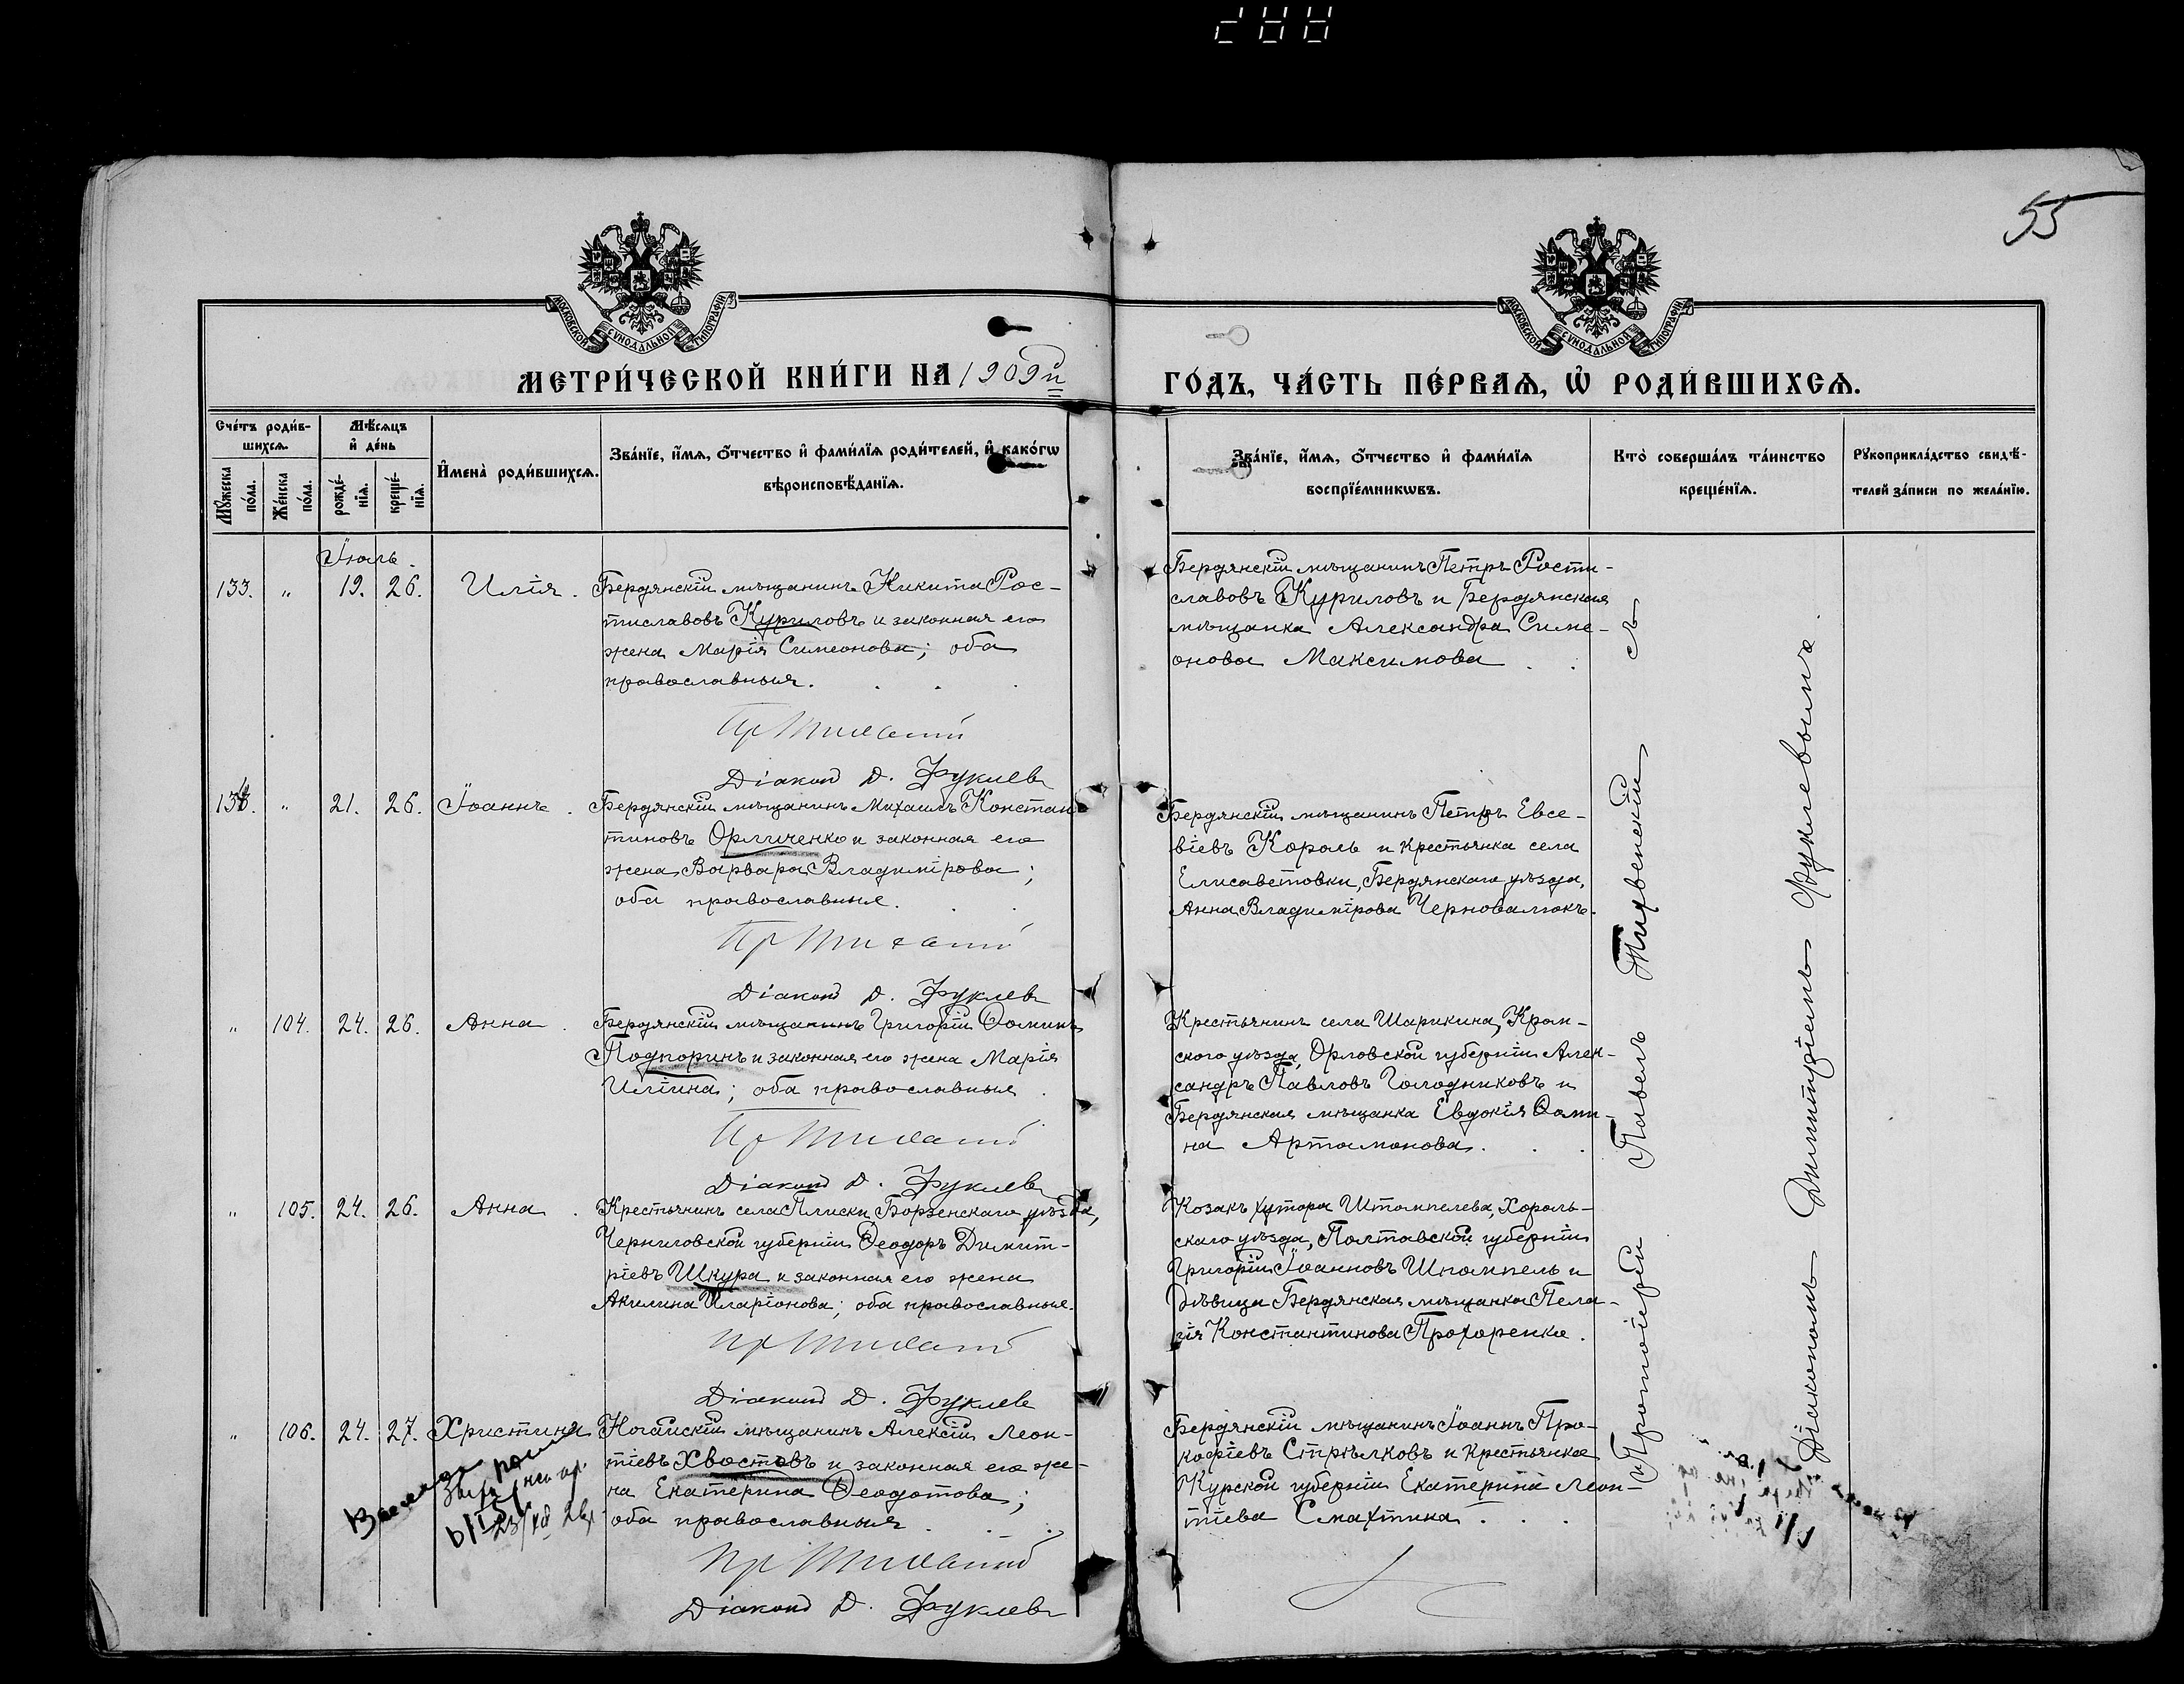 55
МОСКОВСКОЙ СѴНОДАЛЬНОЙ ТИПОГРАФІИ
МОСКОВСКОЙ СѴНОДАЛЬНОЙ ТИПОГРАФІИ
МЕТРИ́ЧЕСКОЙ КНИ́ГИ НА 1909й ГО́ДЪ, ЧА́СТЬ ПЕ́РВАѦ, Ѡ҆ РОДИ́ВШИХСѦ.
Сче́тъ роди́в-
шихсѧ.
Мꙋ́жеска по́ла.
Же́нска по́ла.
Мѣ́сѧцъ
и҆ де́нь
рожде́-
нїѧ.
креще́-
нїѧ.
И҆мена̀ роди́вшихсѧ.
Зва́нїе, и҆́мѧ, ѻ҆́тчество и҆ фами́лїѧ роди́телей, и҆ како́гѡ
вѣроисповѣ́данїѧ.
Зва́нїе, и҆́мѧ, ѻ҆́тчество и҆ фами́лїѧ
воспрїе́мникѡвъ.
Кто̀ соверша́лъ та́инство
креще́нїѧ.
Рꙋкоприкла́дство свидѣ́-
телей за́писи по жела́нїю.
Іюль.
133. " 19. 26. Илія.
Бердянскій мѣщанинъ Никита Рос-
тиславовъ Куриловъ и законная его
жена Марія Симеонова; оба
православныя.
Діаконъ Д. Фуклевъ
Бердянскій мѣщанинъ Петръ Рости-
славовъ Куриловъ и Бердянская
мѣщанка Александра Симе-
онова Максимова
134. " 21. 26. Іоаннъ.
Бердянскій мѣщанинъ Михаилъ Констан-
тиновъ Орличенко и законная его
жена Варвара Владимірова;
оба православные.
Діаконъ Д. Фуклевъ
Бердянскій мѣщанинъ Петръ Евсе-
віевъ Король и крестьянка села
Елисаветовки, Бердянскаго уѣзда,
Анна Владимірова Черновалюкъ.
" 104. 24. 26. Анна.
Бердянскій мѣщанинъ Григорій Ѳоминъ
Подпоринъ и законная его жена Марія
Иліина; оба православныя
Діаконъ Д. Фуклевъ
Крестьянинъ села Шарикина, Кром-
ского уѣзда, Орловской губерніи Алек-
сандръ Павловъ Голодниковъ и
Бердянская мѣщанка Евдокія Ѳоми-
на Артамонова.
" 105. 24. 26. Анна.
Крестьянинъ села Плиски Борзенскаго уѣзда,
Черниговской губерніи Ѳеодоръ Димит-
ріевъ Шкура и законная его жена
Акилина Иларіонова; оба православные.
Діаконъ Д. Фуклевъ
Козакъ хутора Штомпелева, Хороль-
скаго уѣзда, Полтавской губерніи
Григорій Іоанновъ Штомпель и
Дѣвица Бердянская мѣщанка Пела-
гія Константинова Прохоренко.
" 106. 24. 27. Христина
Ногайскій мѣщанинъ Алексій Леон-
тіевъ Хвостовъ и законная его же-
на Екатерина Ѳеодотова;
оба православныя
Діаконъ Д. Фуклевъ
Бердянскій мѣщанинъ Іоаннъ Про-
кофіевъ Стрѣлковъ и крестьянка
Курской губерніи Екатерина Леон-
тіева Смахтина.
Протоіерей Павелъ Тихвенскій съ
Діакономъ Димитріемъ Фуклевымъ.